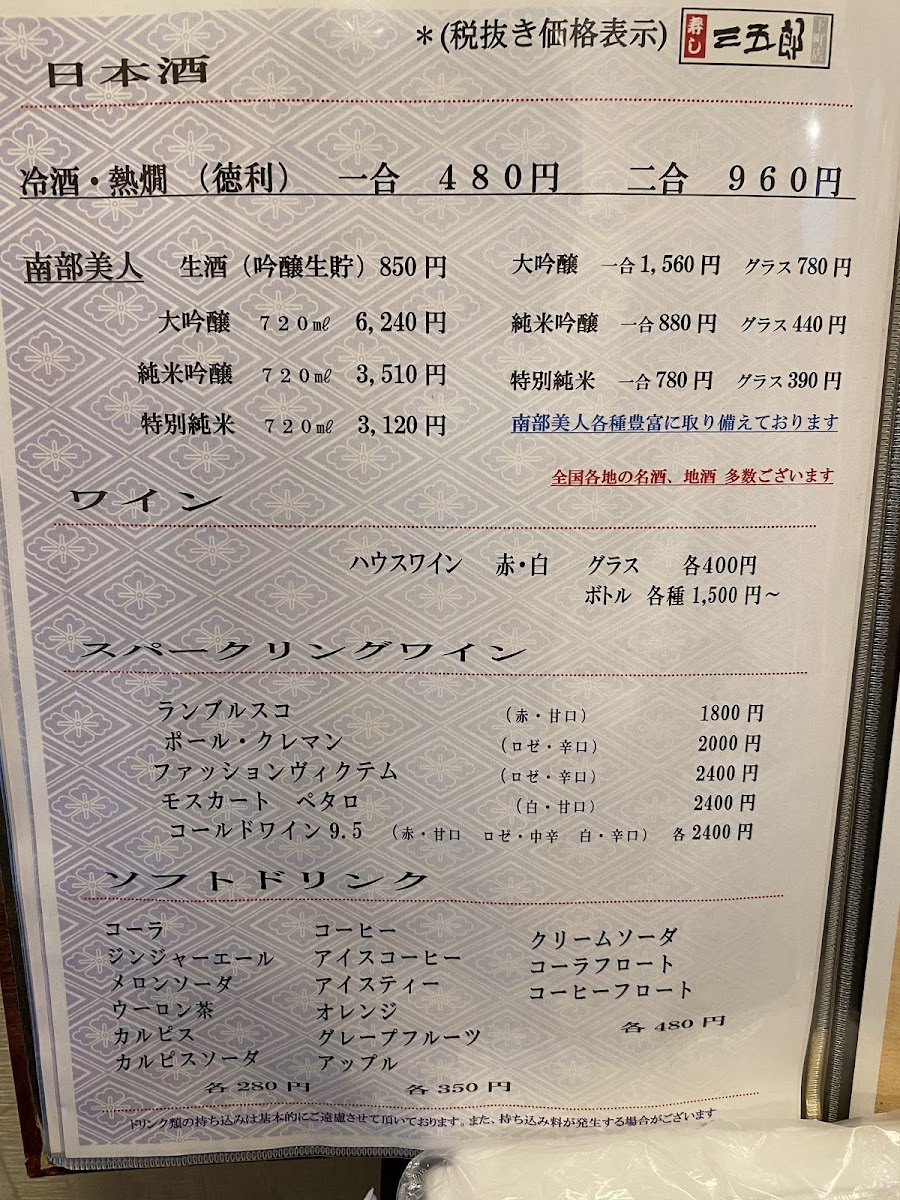 *(税抜き価格表示)
寿し 三五郎 下町店
日本酒
冷酒・熱燗 (徳利) 一合 480円 二合 960円
南部美人 生酒(吟醸生貯)850円 大吟醸 一合1,560円 グラス780円
大吟醸 720㎖ 6,240円 純米吟醸 一合880円 グラス440円
純米吟醸 720㎖ 3,510円 特別純米 一合780円 グラス390円
特別純米 720㎖ 3,120円 南部美人各種豊富に取り備えております
全国各地の名酒、地酒 多数ございます
ワイン
ハウスワイン 赤・白 グラス 各400円
ボトル 各種 1,500円~
スパークリングワイン
ランブルスコ (赤・甘口) 1800円
ポール・クレマン (ロゼ・辛口) 2000円
ファッションヴィクテム (ロゼ・辛口) 2400円
モスカート ペタロ (白・甘口) 2400円
コールドワイン9.5 (赤・甘口 ロゼ・中辛 白・辛口) 各2400円
ソフトドリンク
コーラ コーヒー クリームソーダ
ジンジャーエール アイスコーヒー コーラフロート
メロンソーダ アイスティー コーヒーフロート
ウーロン茶 オレンジ 各480円
カルピス グレープフルーツ
カルピスソーダ アップル
各280円 各350円
ドリンク類の持ち込みは基本的にご遠慮させて頂いております。また、持ち込み料が発生する場合がございます